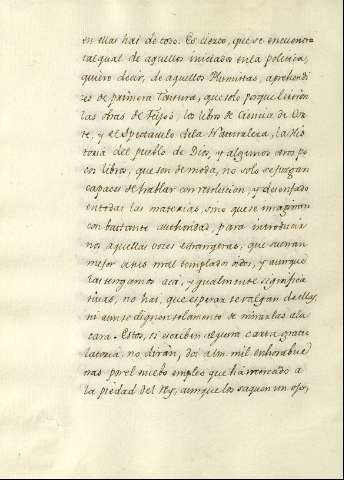 en ellas hai de todo. Es cierto, que se encuentra
tal qual de aquellos iniciados en la policia,
quiero decir, de aquellos Plumistas, aprehendi
ces de primera Tonsura, que solo porque leieron
las obras de Feijoó, los libros de Ciencia de Cor
te, y el Spectaculo de la Naturaleza, la His
toria del pueblo de Dios, y algunos otros po
cos libros, que son de moda, no solo se juzgan
capaces de hablar con resolucion, y desenfado
en todas las materias, sino que se imaginan
con bastante authoridad, para introducir
nos aquellas voces estrangeras, que suenan
mejor a sus mal templados oidos, y aunque
las tengamos acá, ygualmente significa
tivas, no hai, que esperar se valgan de ellas,
ni aun se dignen solamente de mirarlas a la
cara. Estos, si escriben alguna carta gratu
latoria, no dirán, doi a Vm. mil enhorabue
nas por el nuebo empleo que há merecido a
la piedad del Rey, aunque los saquen un ojo,